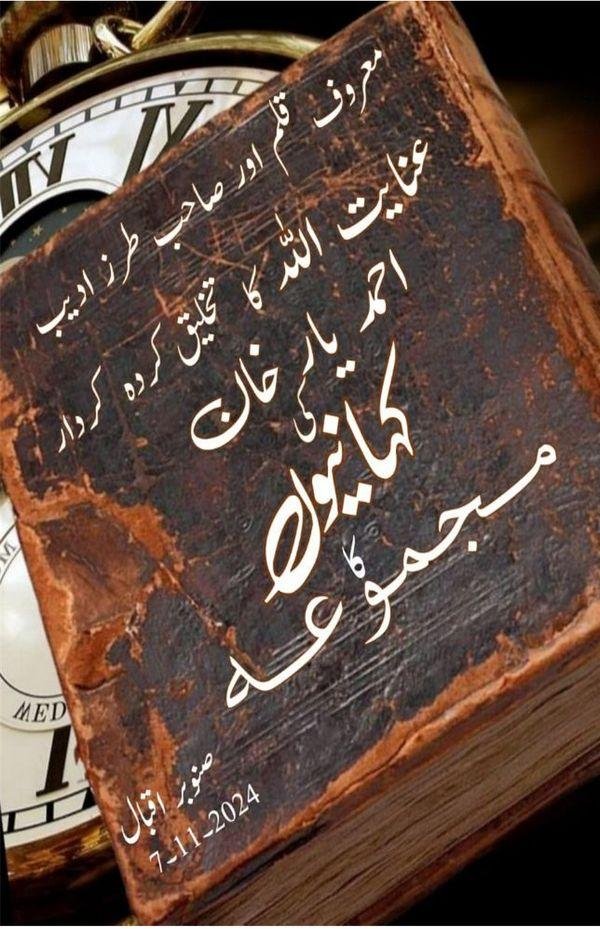 معروف قلم اور صاحب طرز ادیب
عنایت اللہ کا تخلیق کردہ کردار
احمد یار خان
کی
کہانیوں
کا
مجموعہ
صنوبر اقبال
7-11-2024
MED